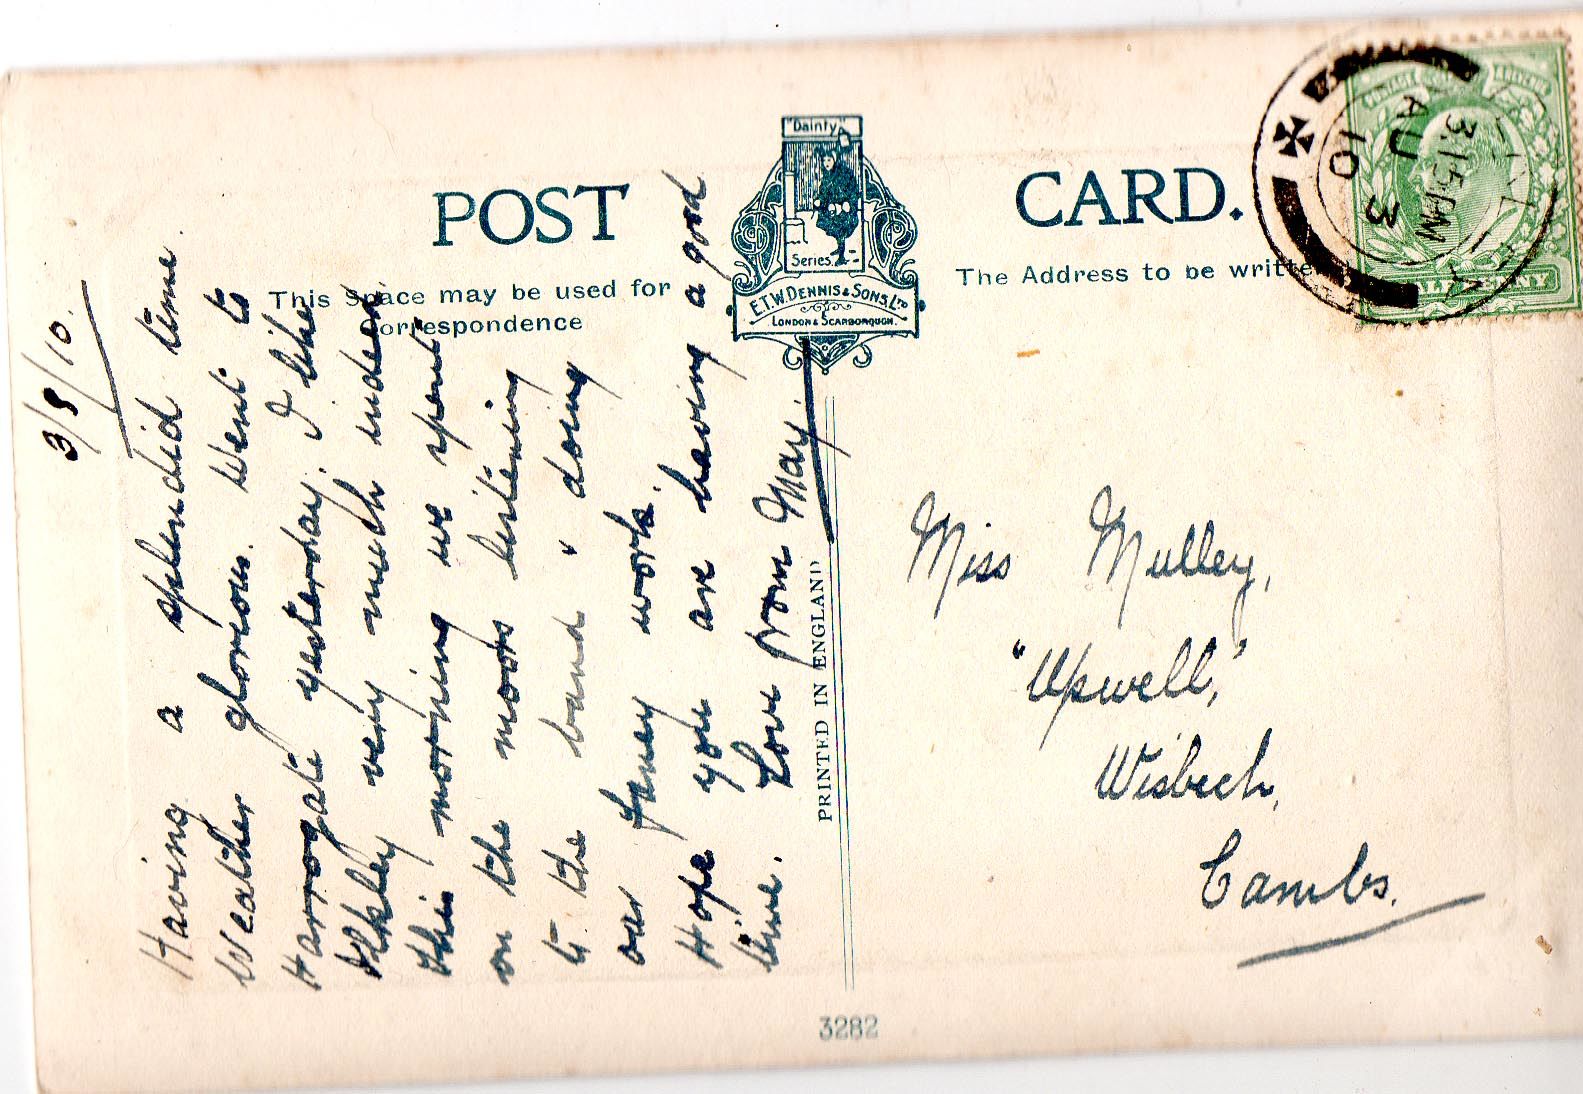 POST CARD.
"Dainty"
Series.
E.T.W. DENNIS & SONS, LTD
LONDON & SCARBOROUGH.
This Space may be used for
Correspondence
The Address to be written
3/8/10.
Having a splendid time.
Weather glorious. Went to
Harrogate yesterday. I like
Ilkley very much indeed.
This morning we spent
on the moors listening
to the band & doing
our fancy work.
Hope you are having a good
time. Love from May.
PRINTED IN ENGLAND
Miss Mulley,
"Upwell,"
Wisbech,
Cambs.
3282
POSTAGE REVENUE
HALFPENNY
3.15PM
AU 3
10